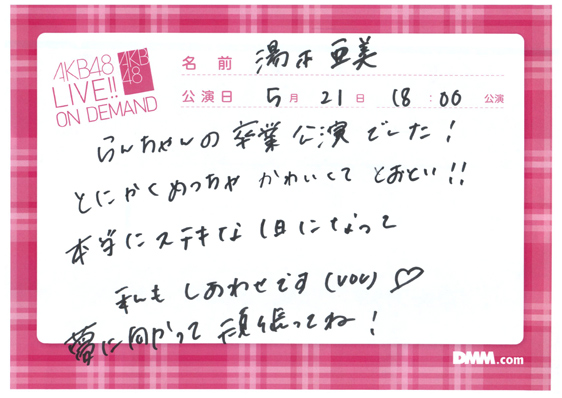 AKB48
LIVE!!
ON DEMAND
AKB
48
名前 湯本亜美
公演日 5月21日 18:00公演
らんちゃんの卒業公演でした!
とにかくめっちゃかわいくてとおとい!!
本当にステキな1日になって
私もしあわせです(VOV)♡
夢に向かって頑張ってね!
DMM.com